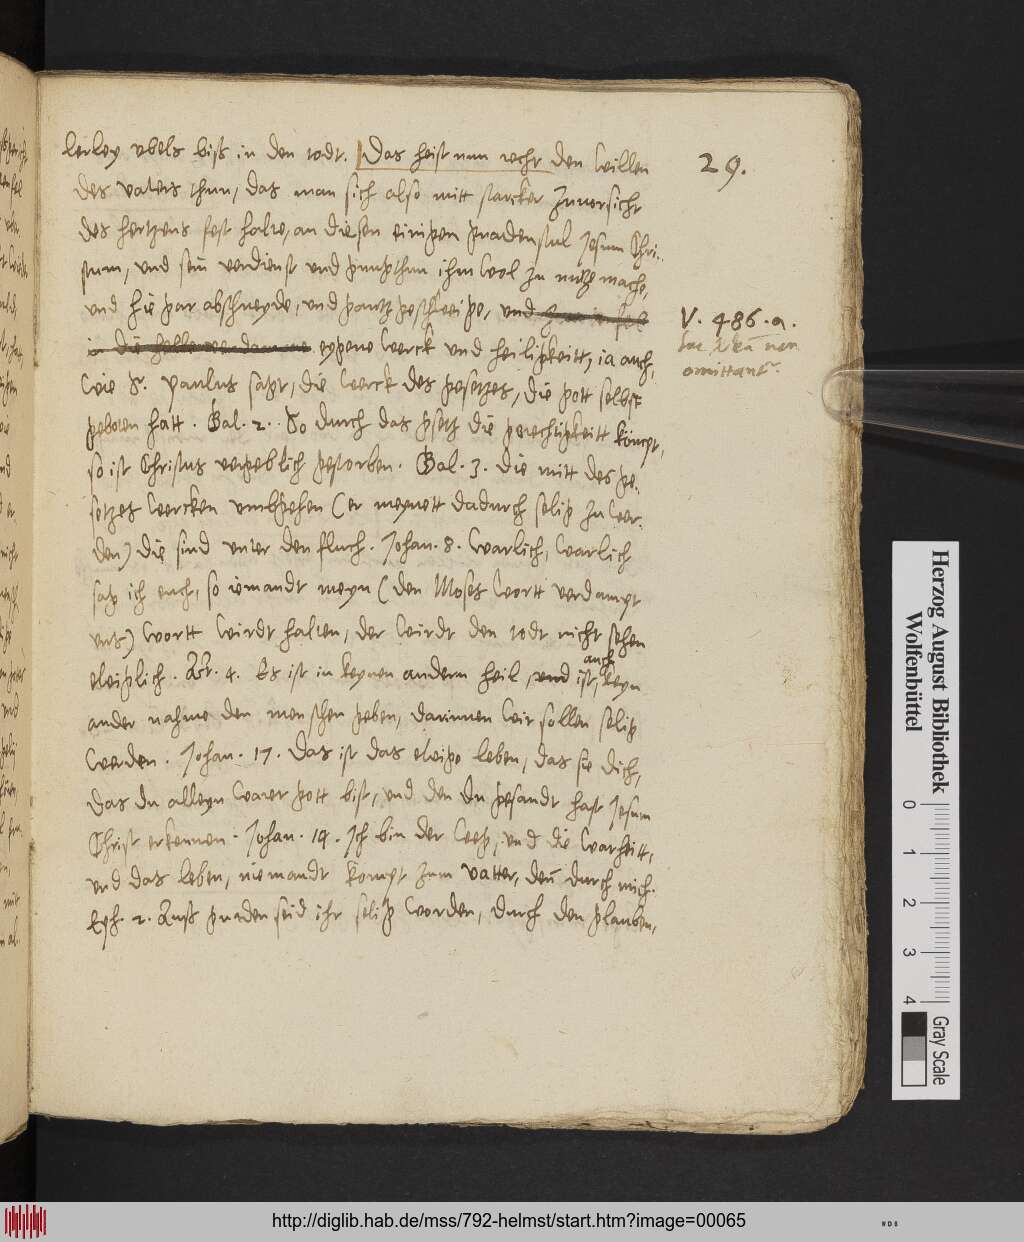 29.
lerley ubels biß in den todt. Das heist nun recht den willen
des vaters thun, das man sich also mitt starcker zuversicht
des hertzens fest halte, an diesen einigen gnadenstul Jesum Chri-
stum, und sein verdienst und gnugthun ihm wol zu nutz mache,
und hie gar abschneyde, und gantz geschweige, und
in die helle verdamme eygene werck und heiligkeitt, ia auch,
V. 486. a.
wie S. Paulus sagt, die werck des gesetzes, die gott selbst
omittantur.
geboten hatt. Gal. 2. So durch das gsetz die gerechtigkeitt kömpt,
so ist Christus vergeblich gestorben. Gal. 3. Die mitt des ge-
setzes wercken umbgehen (er meynett dadurch selig zu wer-
den) die sind unter den fluch. Johan. 8. Warlich, warlich
sag ich euch, so iemandt meyn (den Moses wortt verdampt
uns) wortt wirdt halten, der wirdt den todt nicht sehen
ewiglich. Act. 4. Es ist in keynen andern heil, und ist auch keyn
ander nahme den menschen geben, darinnen wir sollen selig
werden. Johan. 17. Das ist das ewige leben, das sie dich,
das du alleyn warer gott bist, und den du gesandt hast Jesum
Christ erkennen. Johan. 14. Ich bin der weg, und die warheitt,
und das leben, niemandt kompt zum vatter, den̄ durch mich.
Eph. 2. Auß gnaden seid ihr selig worden, durch den glauben,
Herzog August Bibliothek
Wolfenbüttel
0 1 2 3 4
Gray Scale
http://diglib.hab.de/mss/792-helmst/start.htm?image=00065